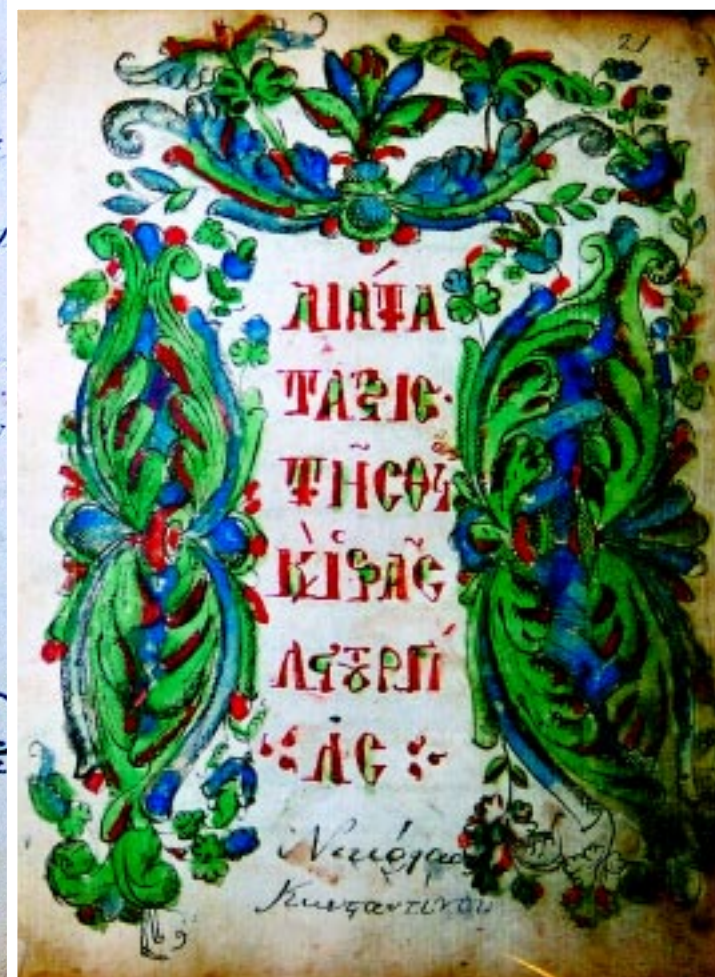 21
ΔΙΑΤΑ
ΤΑΞΙС·
ΤΗ͂С ΘΕΙ
Κ ἹΕΡΑ͂С
ΛΕΙΤȢΡΓΊ
ΑС
Νικόλαος
Κωνσταντίνου